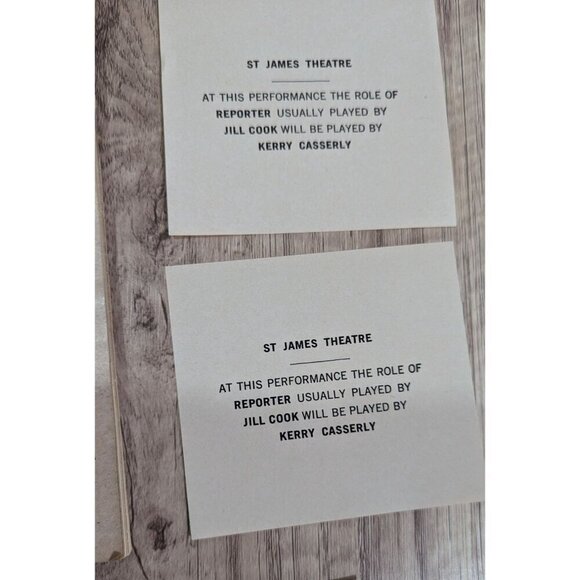 ST JAMES THEATRE
AT THIS PERFORMANCE THE ROLE OF
REPORTER USUALLY PLAYED BY
JILL COOK WILL BE PLAYED BY
KERRY CASSERLY
ST JAMES THEATRE
AT THIS PERFORMANCE THE ROLE OF
REPORTER USUALLY PLAYED BY
JILL COOK WILL BE PLAYED BY
KERRY CASSERLY